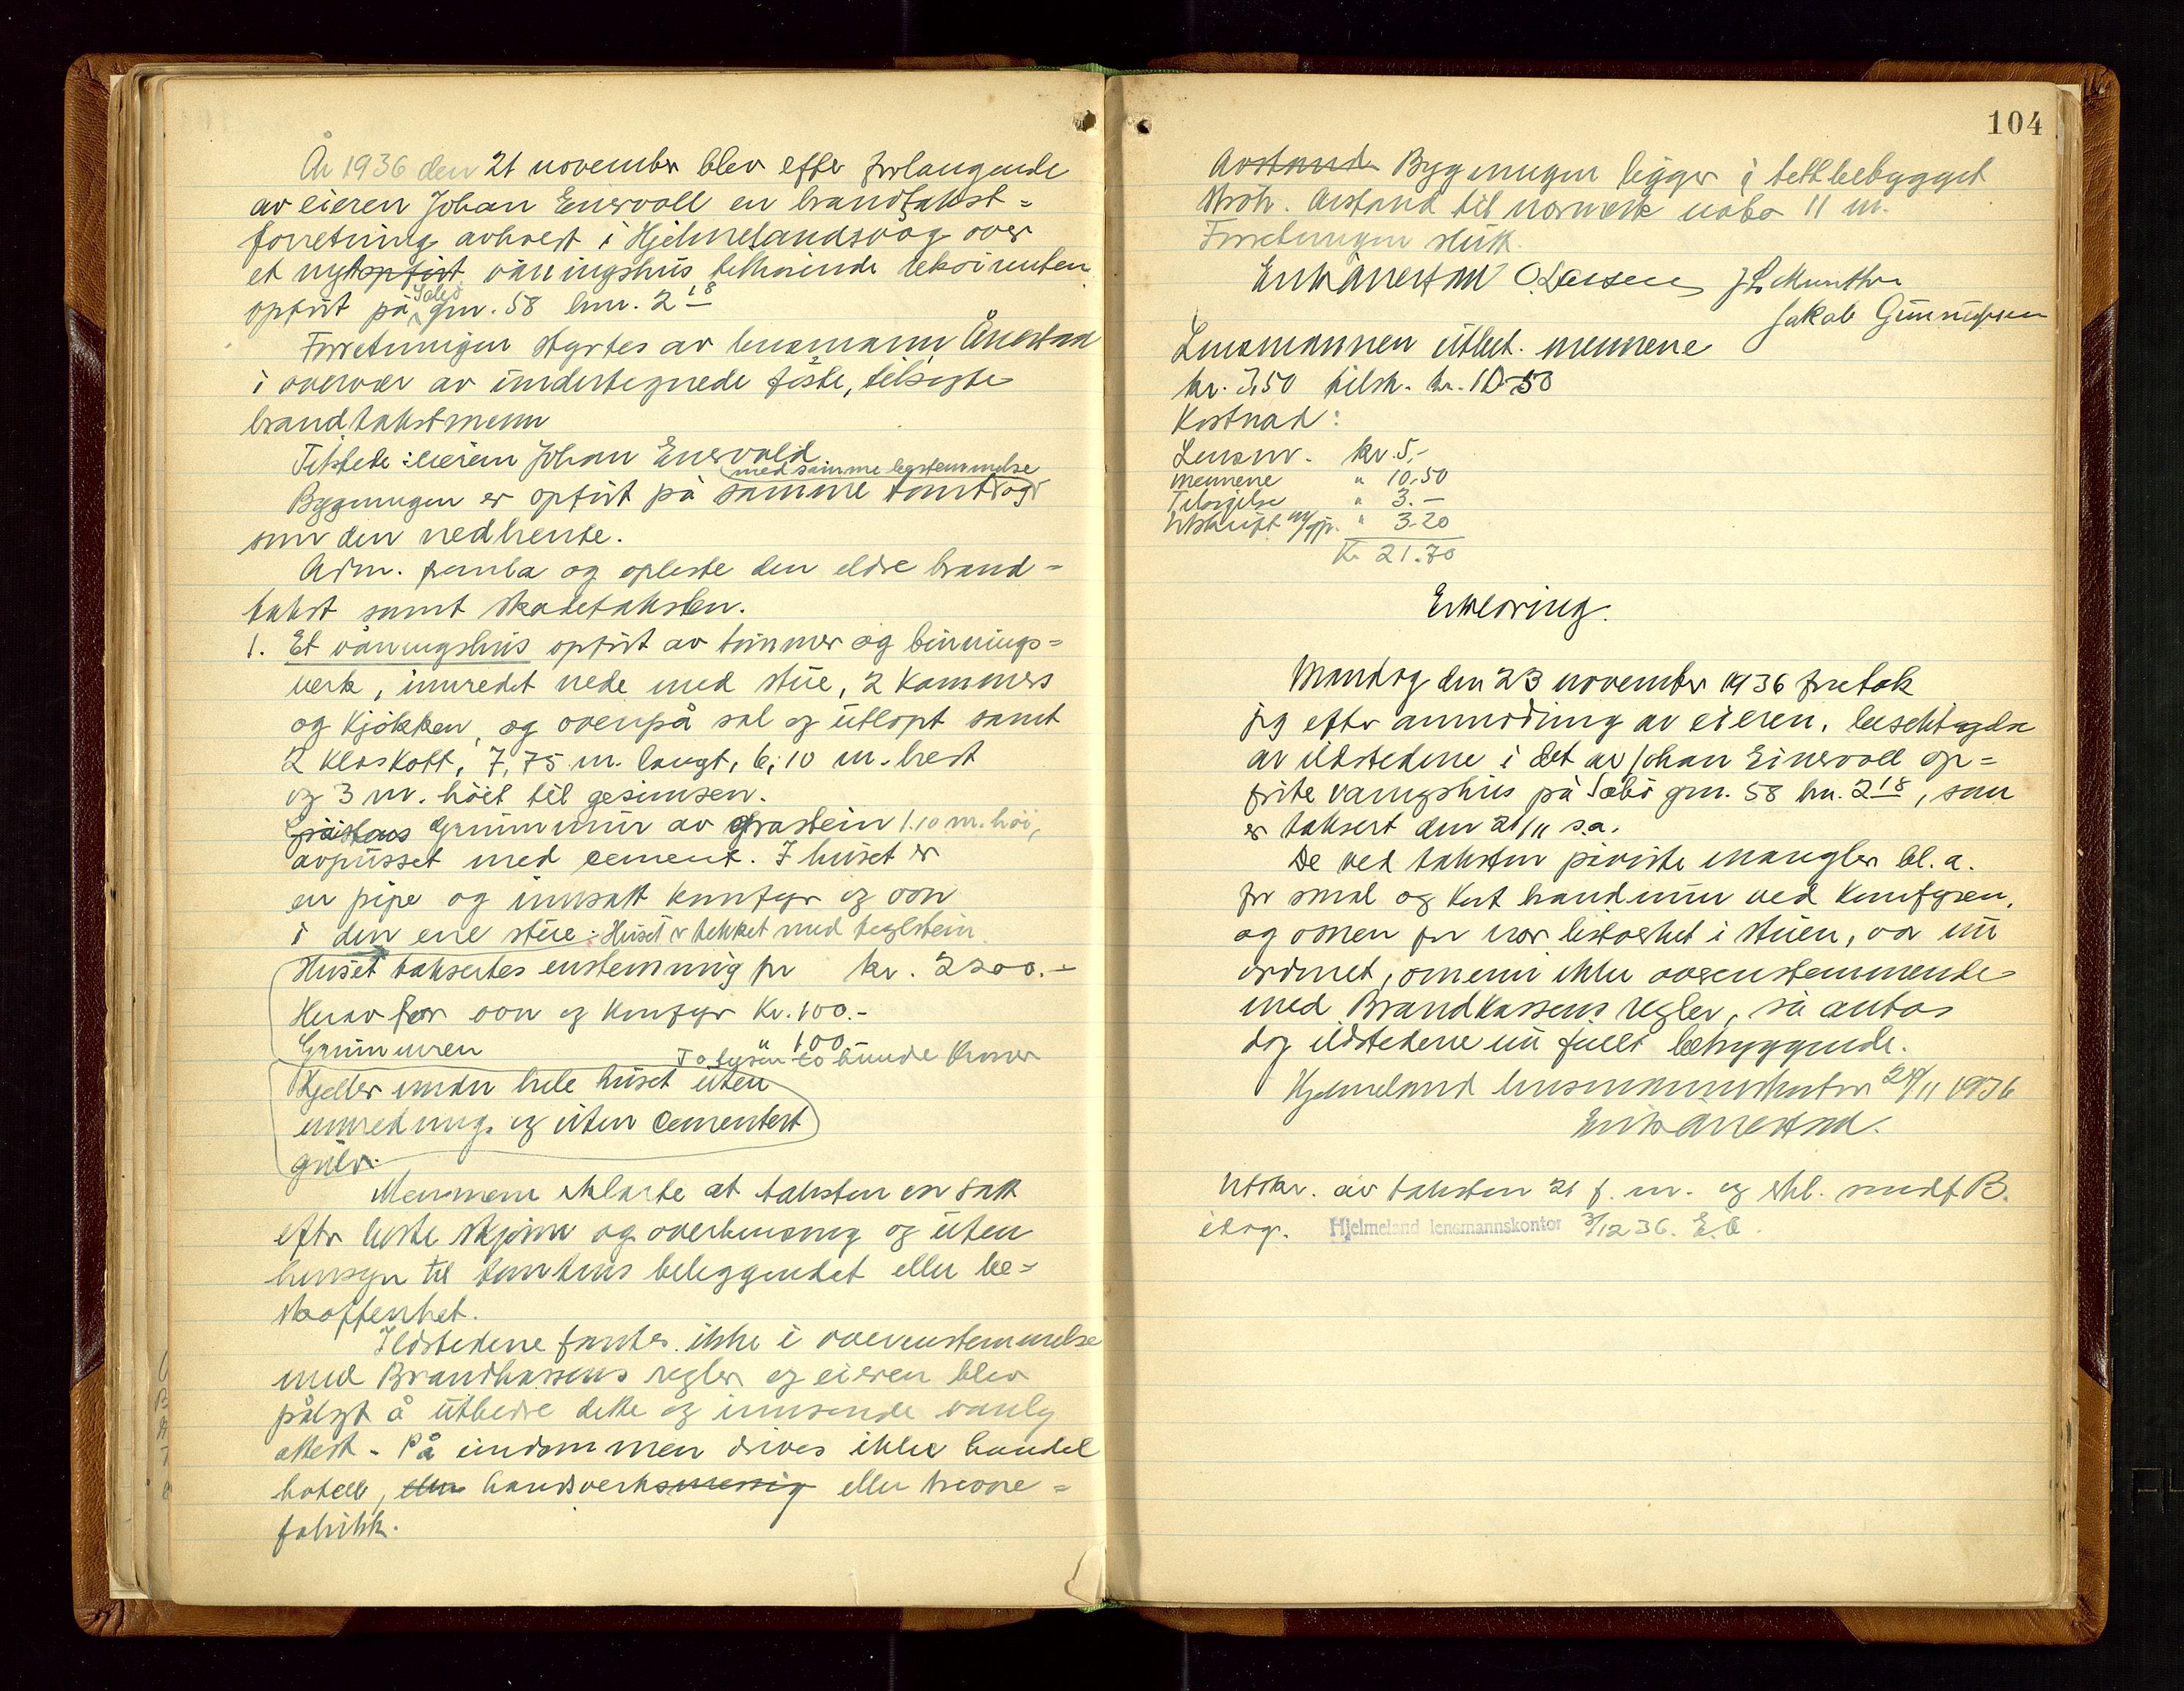 År 1936 den 21 november blev efter forlangende
av eieren Johan Enervoll en brandtakst=
forretning avholdt i Hjelmelandsvåg over
et nytt opført våningshus tilhørende rekvirenten
opført på Sæbø gnr. 58 bnr. 2 18
Forretningen styrtes av lensmann Årrestad
i overvær av undertegnede faste, edsvorne
brandtakstmenn
Tilstede: eieren Johan Enervold
med samme bestemmelse
Bygningen er opført på samme tomt og
som den nedbrente.
Adm. fremla og opleste den eldre brand=
takst samt skadetaksten.
1. Et våningshus opført av tømmer og binnings=
verk, innredet nede med stue, 2 kammers
og kjøkken, og ovenpå sal og utlopt samt
2 kleskott, 7,75 m. langt, 6,10 m. bredt
og 3 m. høit til gesimsen.
Grunnmur av gråstein 1.10 m. høi,
avpusset med cement. I huset er
en pipe og innsatt komfyr og ovn
i den ene stue. Huset er tekket med teglstein
Huset taksertes enstemmig for kr. 2200.-
Herav for ovn og komfyr kr. 100.-
Grunnmuren " 100
To tusen to hundre kroner
Kjeller under hele huset uten
innredning og uten cementert
gulv.
Mennene erklærte at taksten er satt
efter beste skjønn og overbevisning og uten
hensyn til tomtens beliggendet eller be=
skaffenhet.
Ildstedene fantes ikke i overenstemmelse
med Brandkassens regler og eieren blev
pålagt å utbedre dette og innsende vanlig
attest. På eindommen drives ikke handel
hotell, eller handverksmessig eller trevare=
fabrikk.
104
Avstand Bygningen ligger i tettbebygget
strøk. Avstand til nærmeste nabo 11 m.
Forretningen slutt.
Enk Årrestad O. Larsen J L Munthe
Jakob Gunnufsen
Lensmannen utbet. mennene
kr. 3,50 tilsk. kr. 10.50
Kostnad:
Lensm. kr. 5,-
Mennene " 10.50
Tilsigelse " 3.-
Utskrift m/gjp. " 3.20
Kr. 21.70
Erklæring.
Mandag den 23 november 1936 foretok
jeg efter anmodning av eieren, besektigelse
av ildstedene i det av Johan Einervoll op=
førte vaningshus på Sæbø gnr. 58 bnr. 2 18, som
er taksert den 21/11 s.a.
De ved taksten påviste mangler bl. a.
for smal og kort brandmur ved komfyren,
og ovnen for nær listverket i stuen, var nu
ordnet, omenn ikke overenstemmende
med Brandkassens regler, så antas
dog ildstedene nu fullt betryggende.
Hjelmeland lensmannskontor 24/11 1936
Enk Årrestad.
Utskr. av taksten 21 f. m. og erkl. sendt B.
idag. Hjelmeland lensmannskontor 3/12 36. E.Å.